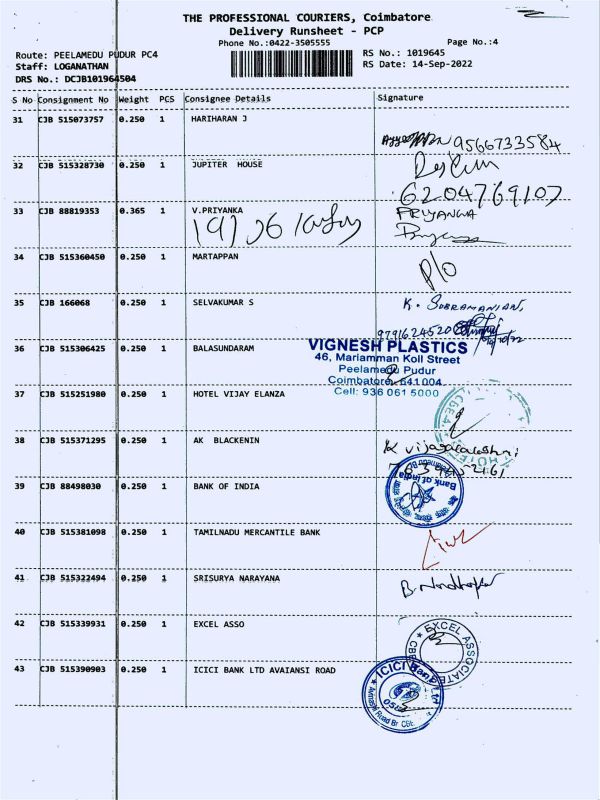 THE PROFESSIONAL COURIERS, Coimbatore
Delivery Runsheet - PCP
Phone No.:0422-3505555
Page No.:4
Route: PEELAMEDU PUDUR PC4
RS No.: 1019645
Staff: LOGANATHAN
RS Date: 14-Sep-2022
DRS No.: DCJB101964504
S No Consignment No Weight PCS Consignee Details Signature
31 CJB 515073757 0.250 1 HARIHARAN J
9566733584
32 CJB 515328730 0.250 1 JUPITER HOUSE
6204769107
33 CJB 88819353 0.365 1 V.PRIYANKA PRIYANGA
34 CJB 515360450 0.250 1 MARTAPPAN P/o
35 CJB 166068 0.250 1 SELVAKUMAR S K. SUBRAMANIAN,
9791624520
36 CJB 515306425 0.250 1 BALASUNDARAM
VIGNESH PLASTICS
46, Mariamman Koll Street
Peelamedu Pudur
Coimbatore 641 004.
Cell: 936 061 5000
37 CJB 515251980 0.250 1 HOTEL VIJAY ELANZA
38 CJB 515371295 0.250 1 AK BLACKENIN
K vijayalakshmi
39 CJB 88498030 0.250 1 BANK OF INDIA
Bank of India
40 CJB 515381098 0.250 1 TAMILNADU MERCANTILE BANK
41 CJB 515322494 0.250 1 SRISURYA NARAYANA
42 CJB 515339931 0.250 1 EXCEL ASSO
EXCEL ASSOCIATES
43 CJB 515390903 0.250 1 ICICI BANK LTD AVAIANSI ROAD
ICICI Bank Ltd